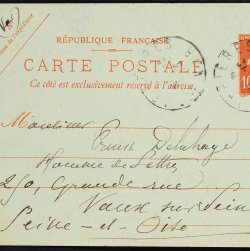 RÉPUBLIQUE FRANÇAISE
CARTE POSTALE
Ce côté est exclusivement réservé à l'adresse.
Monsieur
Ernest Delahaye
Homme de Lettres
250, Grande rue
Vaux sur Seine
Seine-et-Oise
10